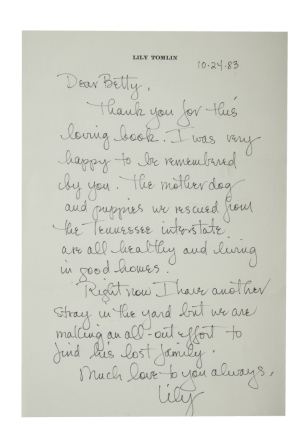 LILY TOMLIN
10.24.83
Dear Betty,
Thank you for this
loving book. I was very
happy to be remembered
by you. The mother dog
and puppies we rescued from
the Tennessee interstate
are all healthy and living
in good homes.
Right now I have another
stray in the yard but we are
making an all-out effort to
find his lost family.
Much love to you always,
Lily